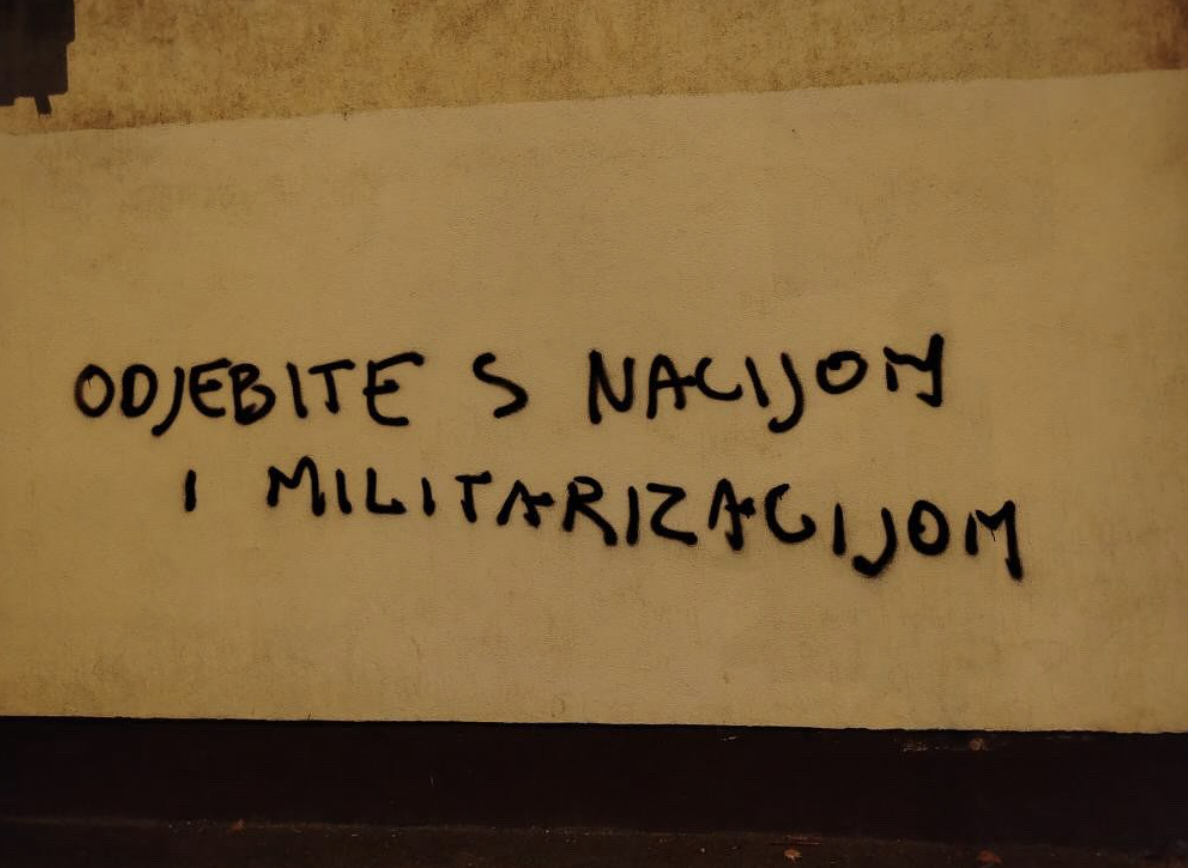 ODJEBITE S NACIJOM
I MILITARIZACIJOM